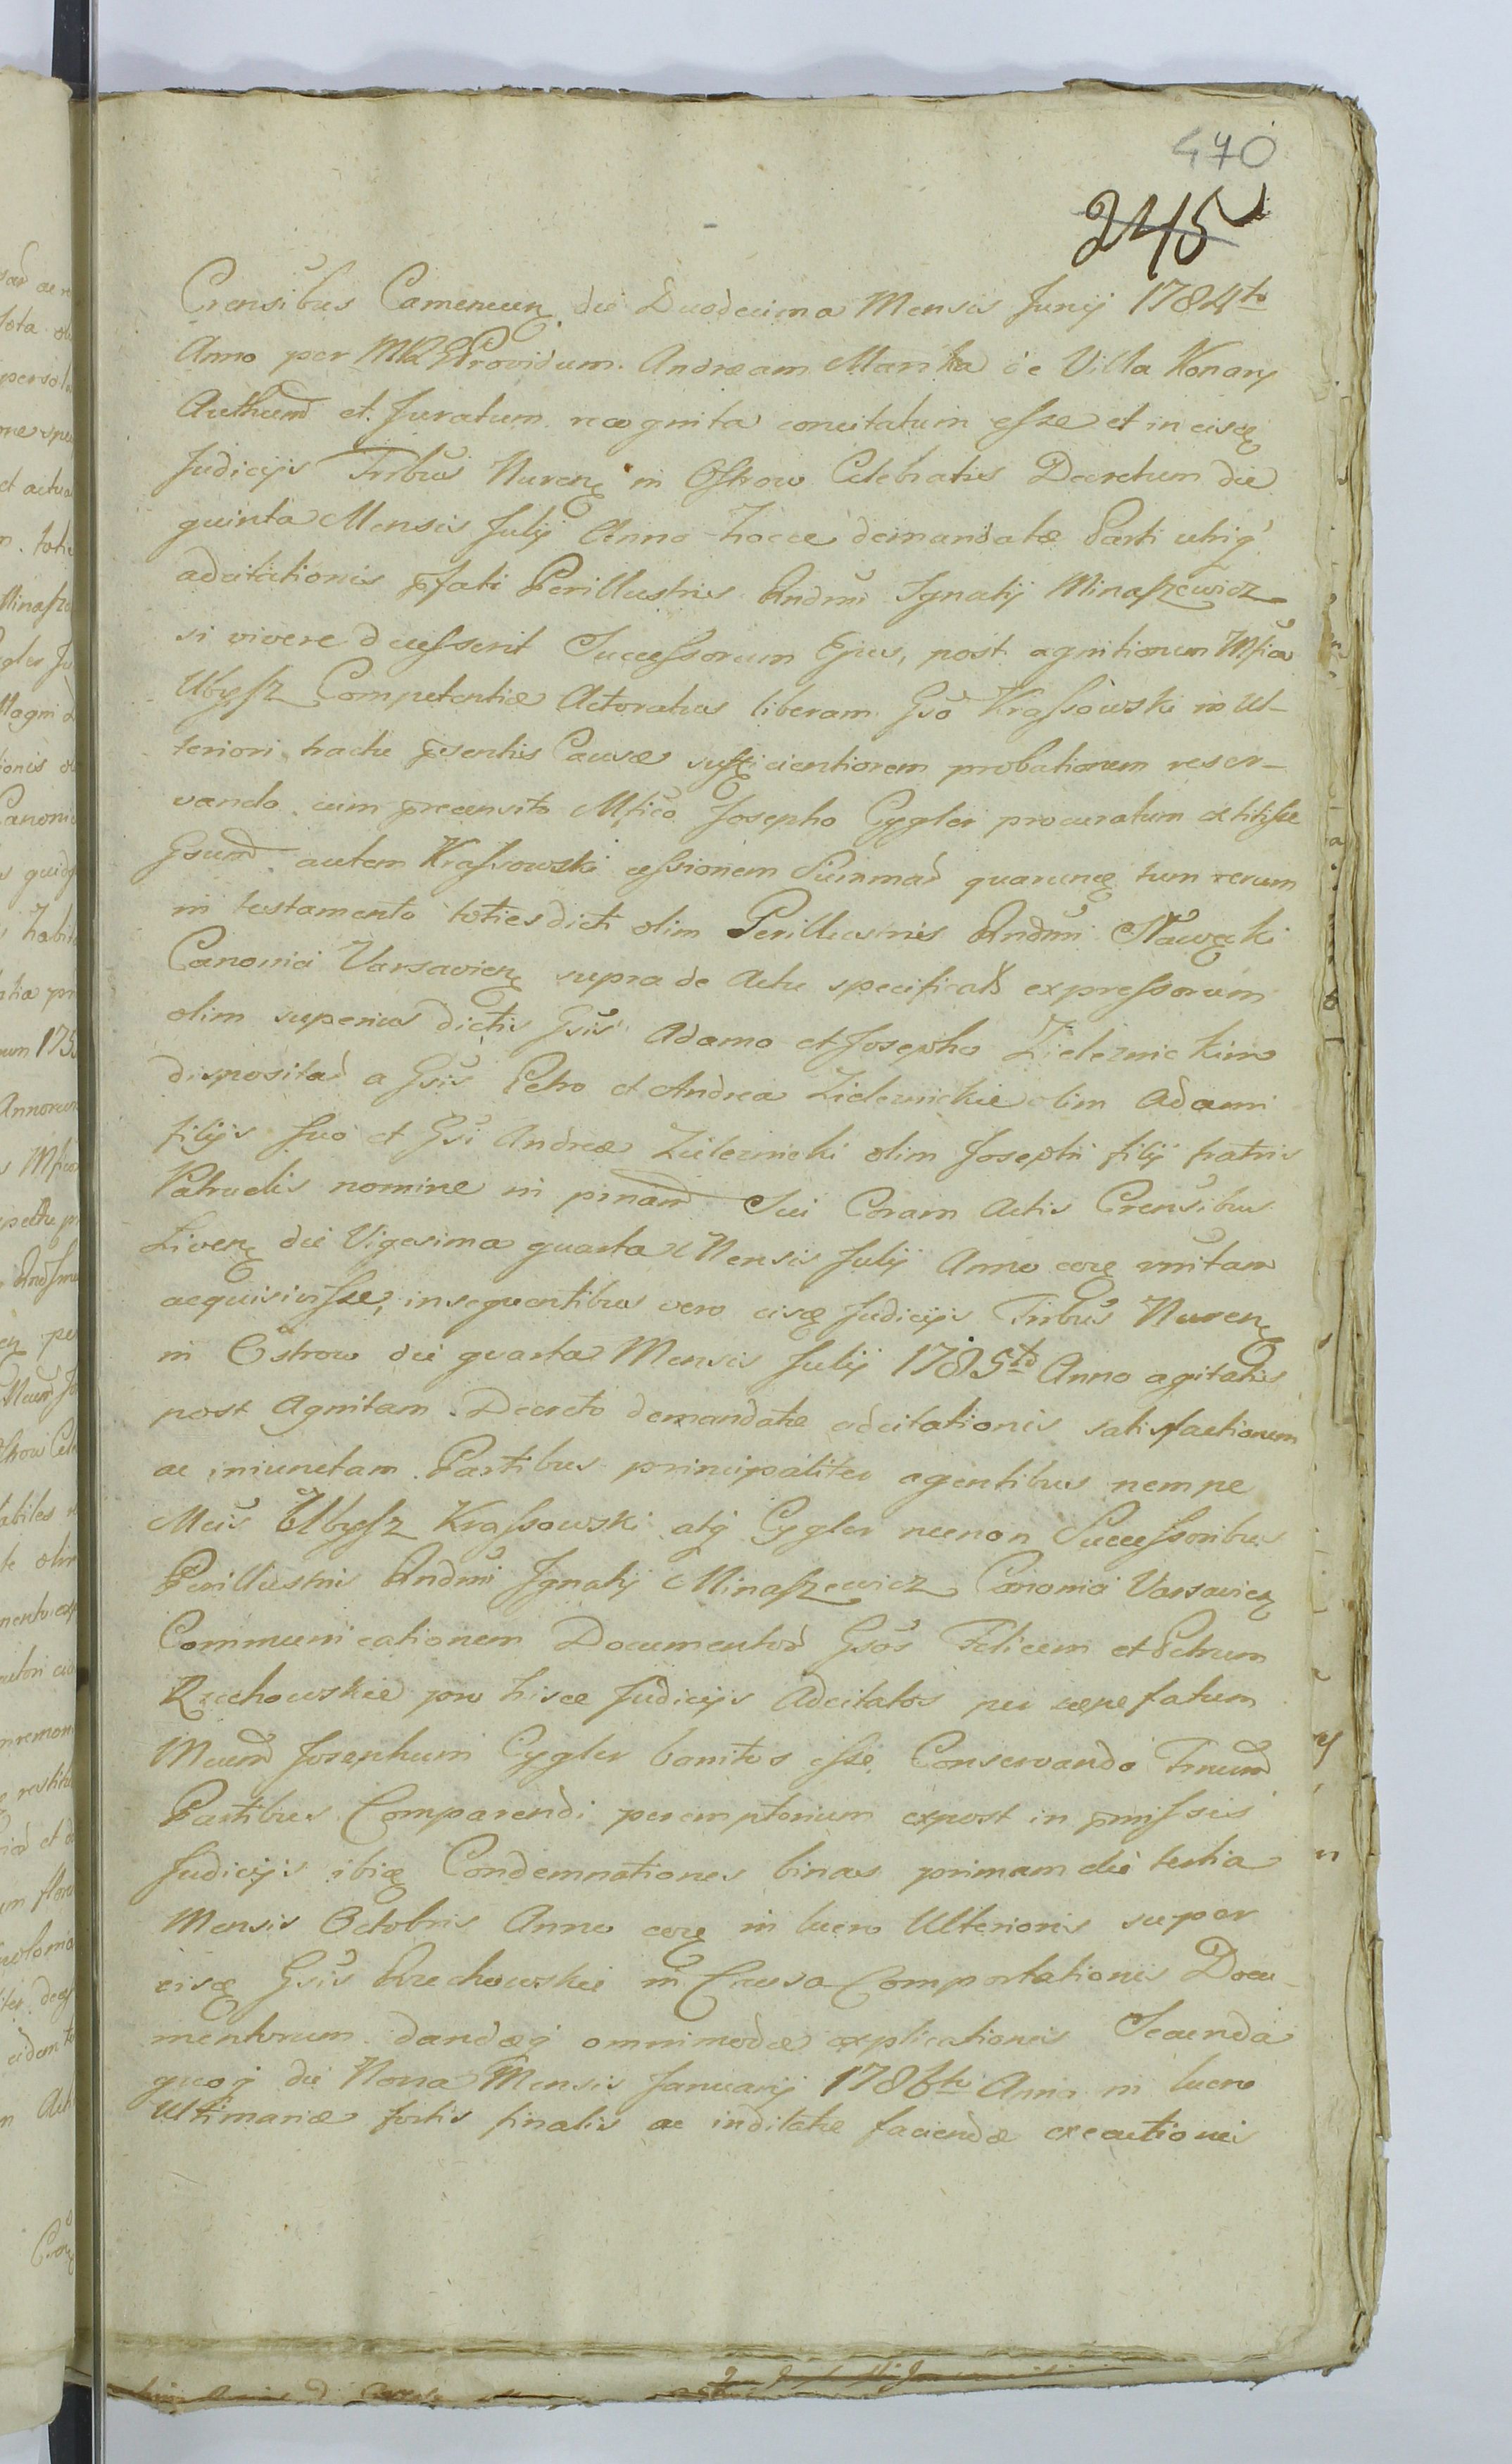 470
245
Crensibus Camenecen die Duodecima Mensis Junij 1784to
Anno per Providum Andream Marika de Villa Konary
Authum et Juratum recognita concitatum esse et in eisq
Judicijs Tribus Nuren in Ostrow Celebratis Decretum die
quinta Mensis Julij Anno hocce demandatæ Parti utriq
adcitationis pfati Perillustris Rndmi Ignatij Minaszewicz
si vivere decesserit Successorum Ejus, post agnitionem Mfica
Ubysz Competentiæ Actoratus liberam Gso Krassowski in Ul-
teriori tractu psentis Causæ sufficientiorem probationem reser-
vando cum precensito Mfico Josepho Cygler procuratum extitisse
Gsum autem Krassowski cessionem Summar quarunq tum rerum
in testamento toties dicti olim Perillustris Rndmi Nawęcki
Canonici Varsavien supra de Actu specificat expressorum
olim superius dictis Gsis Adamo et Josepho Zieleznickim
dispositar a Gsis Petro et Andrea Zieleznickie olim Adami
filijs suo et Gsi Andreæ Zieleznicki olim Josephi filij fratris
Patruelis nomine in psnam Sui Coram Actis Crensibus
Liven die Vigesima quarta Mensis Julij Anno eoq unitam
acquisivisse, insequentibus vero eisq Judicijs Tribus Nuren
in Ostrow die quarta Mensis Julij 1785to Anno agitatis
post Agnitam Decreto demandatæ adcitationis satisfactionem
ac iniunctam Partibus principaliter agentibus nempe
Mcis Ubysz Krassowski atq Cygler necnon Successoribus
Perillustris Rndmi Ignatij Minaszewicz Canonici Varsavien
Communicationem Documentor Gsos Felicem et Petrum
Rzechowskie pro hisce Judicijs Adcitatos per sæpefatum
Mcum Josephum Cygler banitos esse, Conservando Trnum
Partibus Comparendi peremptorium expost in pmissis
Judicijs ibiq Condemnationes binas primam die tertia
Mensis Octobris Anno eoq in lucro Ulterioris super
eisq Gsis Rzechowskie in Causa Comportationis Docu-
mentorum dandæq omnimodæ explicationis Secunda
quoq die Nona Mensis Januarij 1786to Anno in lucro
Ultimariæ fortis finalis ac inditatæ faciendæ executionis